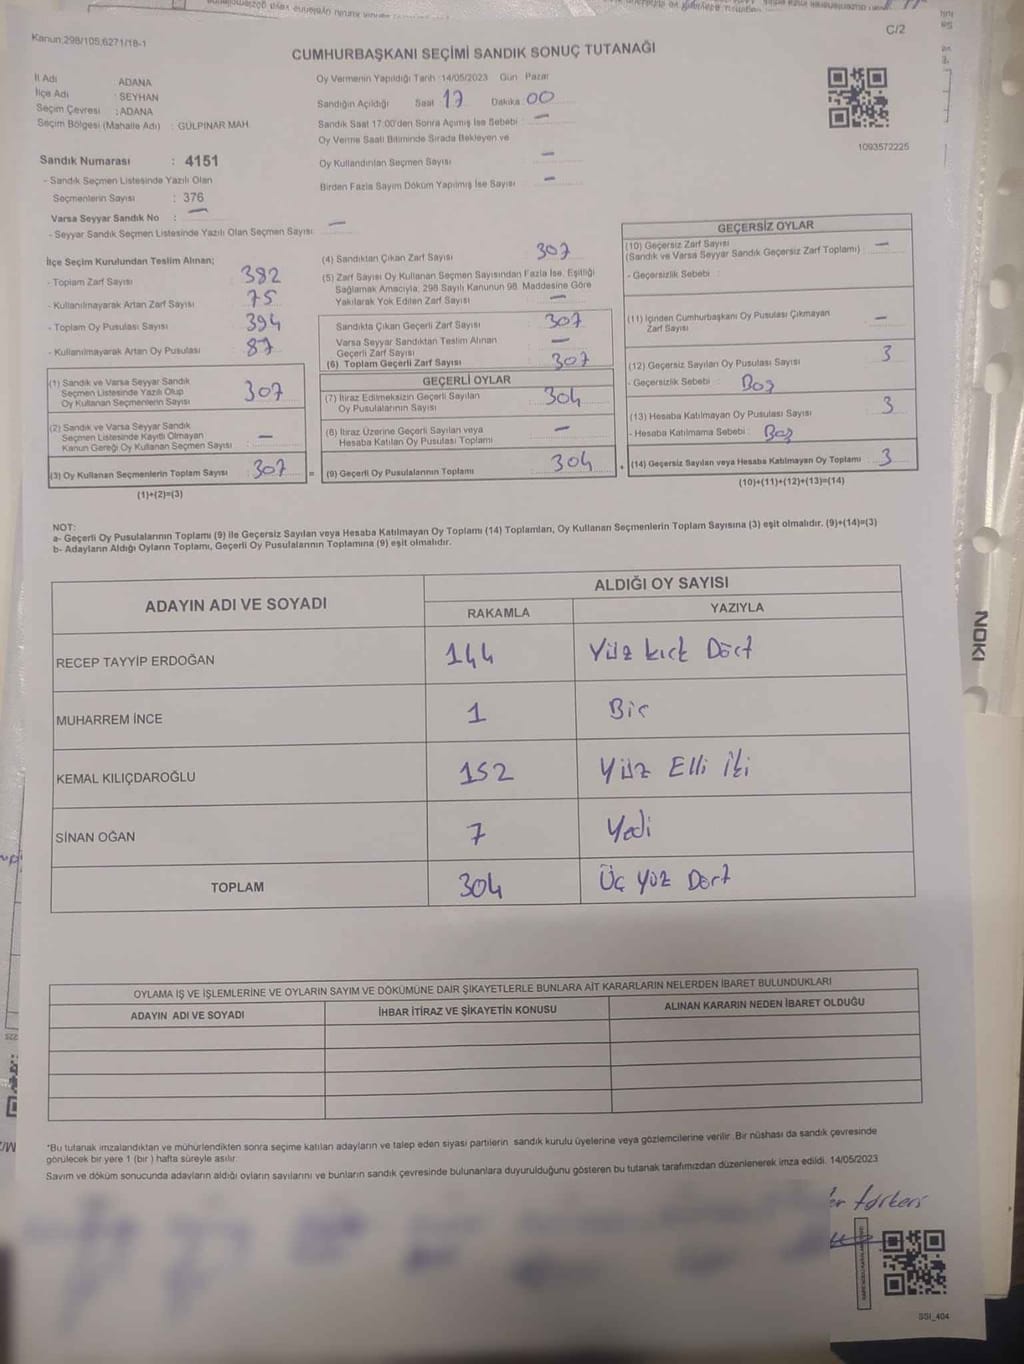 Kanun:298/105,6271/18-1
C/2
CUMHURBAŞKANI SEÇİMİ SANDIK SONUÇ TUTANAĞI
İl Adı ADANA
İlçe Adı : SEYHAN
Seçim Çevresi : ADANA
Seçim Bölgesi (Mahalle Adı) : GÜLPINAR MAH.
Oy Vermenin Yapıldığı Tarih :14/05/2023 Gün Pazar
Sandığın Açıldığı Saat 17 Dakika 00
Sandık Saat 17:00'den Sonra Açılmış İse Sebebi : —
Oy Verme Saati Bitiminde Sırada Bekleyen ve
Oy Kullandırılan Seçmen Sayısı —
Birden Fazla Sayım Döküm Yapılmış İse Sayısı —
1093572225
Sandık Numarası : 4151
- Sandık Seçmen Listesinde Yazılı Olan
Seçmenlerin Sayısı : 376
Varsa Seyyar Sandık No : —
- Seyyar Sandık Seçmen Listesinde Yazılı Olan Seçmen Sayısı: —
İlçe Seçim Kurulundan Teslim Alınan;
- Toplam Zarf Sayısı 382
- Kullanılmayarak Artan Zarf Sayısı 75
- Toplam Oy Pusulası Sayısı 394
- Kullanılmayarak Artan Oy Pusulası 87
(1) Sandık ve Varsa Seyyar Sandık
Seçmen Listesinde Yazılı Olup
Oy Kullanan Seçmenlerin Sayısı 307
(2) Sandık ve Varsa Seyyar Sandık
Seçmen Listesinde Kayıtlı Olmayan
Kanun Gereği Oy Kullanan Seçmen Sayısı —
(3) Oy Kullanan Seçmenlerin Toplam Sayısı 307
(1)+(2)=(3)
(4) Sandıktan Çıkan Zarf Sayısı 307
(5) Zarf Sayısı Oy Kullanan Seçmen Sayısından Fazla İse, Eşitliği
Sağlamak Amacıyla, 298 Sayılı Kanunun 98. Maddesine Göre
Yakılarak Yok Edilen Zarf Sayısı —
Sandıkta Çıkan Geçerli Zarf Sayısı 307
Varsa Seyyar Sandıktan Teslim Alınan
Geçerli Zarf Sayısı —
(6) Toplam Geçerli Zarf Sayısı 307
GEÇERLİ OYLAR
(7) İtiraz Edilmeksizin Geçerli Sayılan
Oy Pusulalarının Sayısı 304
(8) İtiraz Üzerine Geçerli Sayılan veya
Hesaba Katılan Oy Pusulası Toplamı —
= (9) Geçerli Oy Pusulalarının Toplamı 304
GEÇERSİZ OYLAR
(10) Geçersiz Zarf Sayısı —
(Sandık ve Varsa Seyyar Sandık Geçersiz Zarf Toplamı)
- Geçersizlik Sebebi :
(11) İçinden Cumhurbaşkanı Oy Pusulası Çıkmayan
Zarf Sayısı —
(12) Geçersiz Sayılan Oy Pusulası Sayısı 3
- Geçersizlik Sebebi : Boş
(13) Hesaba Katılmayan Oy Pusulası Sayısı 3
- Hesaba Katılmama Sebebi : Boş
+ (14) Geçersiz Sayılan veya Hesaba Katılmayan Oy Toplamı 3
(10)+(11)+(12)+(13)=(14)
NOT:
a- Geçerli Oy Pusulalarının Toplamı (9) ile Geçersiz Sayılan veya Hesaba Katılmayan Oy Toplamı (14) Toplamları, Oy Kullanan Seçmenlerin Toplam Sayısına (3) eşit olmalıdır. (9)+(14)=(3)
b- Adayların Aldığı Oyların Toplamı, Geçerli Oy Pusulalarının Toplamına (9) eşit olmalıdır.
ADAYIN ADI VE SOYADI
ALDIĞI OY SAYISI
RAKAMLA YAZIYLA
RECEP TAYYİP ERDOĞAN 144 Yüz kırk Dört
MUHARREM İNCE 1 Bir
KEMAL KILIÇDAROĞLU 152 Yüz Elli İki
SİNAN OĞAN 7 Yedi
TOPLAM 304 Üç Yüz Dört
OYLAMA İŞ VE İŞLEMLERİNE VE OYLARIN SAYIM VE DÖKÜMÜNE DAİR ŞİKAYETLERLE BUNLARA AİT KARARLARIN NELERDEN İBARET BULUNDUKLARI
ADAYIN ADI VE SOYADI İHBAR İTİRAZ VE ŞİKAYETİN KONUSU ALINAN KARARIN NEDEN İBARET OLDUĞU
*Bu tutanak imzalandıktan ve mühürlendikten sonra seçime katılan adayların ve talep eden siyasi partilerin sandık kurulu üyelerine veya gözlemcilerine verilir. Bir nüshası da sandık çevresinde
görülecek bir yere 1 (bir) hafta süreyle asılır.
Sayım ve döküm sonucunda adayların aldığı oyların sayılarını ve bunların sandık çevresinde bulunanlara duyurulduğunu gösteren bu tutanak tarafımızdan düzenlenerek imza edildi. 14/05/2023
SSI_404
NOKI